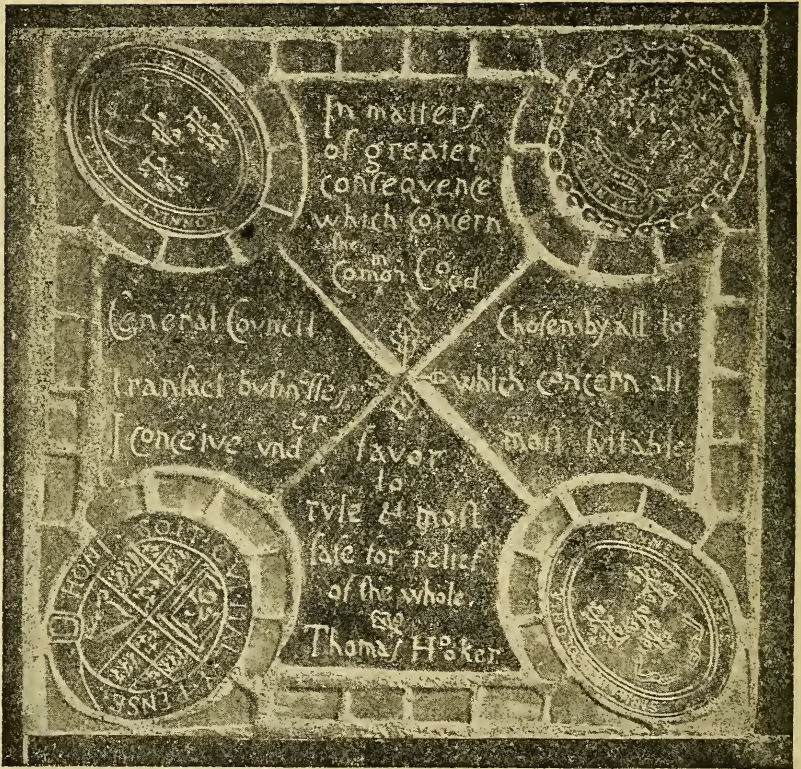 In matters
of greater
consequence
which concern
the
m
Comon Good
General Council Chosen by all to
transact businesses which concern all
er
I conceive vnd favor most svitable
to
rvle & most
safe for relief
of the whole.
Thomas Hooker
HONI SOIT QVI MAL Y PENSE